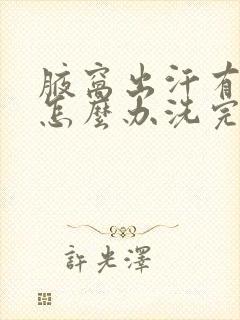 腋窩出汗有
怎麼办洗完
許光澤